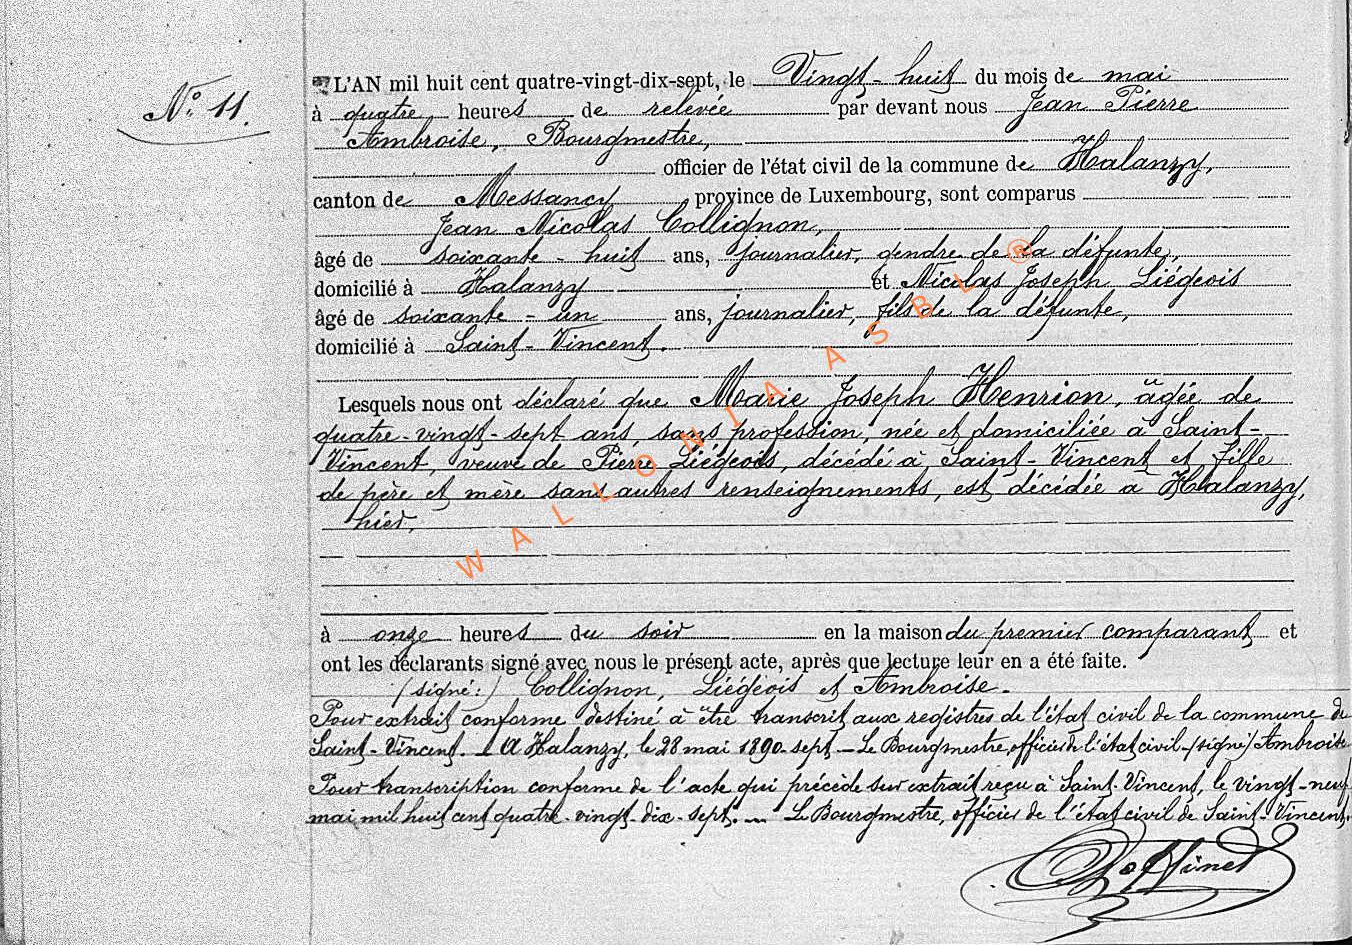 N° 11.
L'AN mil huit cent quatre-vingt-dix-sept, le Vingt-huit du mois de mai
à quatre heures de relevée par devant nous Jean Pierre
Ambroise, Bourgmestre,
officier de l'état civil de la commune de Halanzy,
canton de Messancy province de Luxembourg, sont comparus
Jean Nicolas Collignon,
âgé de soixante-huit ans, journalier, gendre de la défunte,
domicilié à Halanzy et Nicolas Joseph Liégeois
âgé de soixante-un ans, journalier, fils de la défunte,
domicilié à Saint-Vincent.
Lesquels nous ont déclaré que Marie Joseph Henrion, âgée de
quatre-vingt-sept ans, sans profession, née et domiciliée à Saint-
Vincent, veuve de Pierre Liégeois, décédé à Saint-Vincent et fille
de père et mère sans autres renseignements, est décédée à Halanzy,
hier,
à onze heures du soir en la maison du premier comparant et
ont les déclarants signé avec nous le présent acte, après que lecture leur en a été faite.
(signé:) Collignon, Liégeois et Ambroise.
Pour extrait conforme destiné à être transcrit aux registres de l'état civil de la commune de
Saint-Vincent. A Halanzy, le 28 mai 1890-sept - Le Bourgmestre, officier de l'état civil - (signé) Ambroise
Pour transcription conforme de l'acte qui précède sur extrait reçu à Saint-Vincent, le vingt-neuf
mai mil huit cent quatre-vingt-dix-sept. - Le Bourgmestre, officier de l'état civil de Saint-Vincent.
WALLONIA ASBL ®